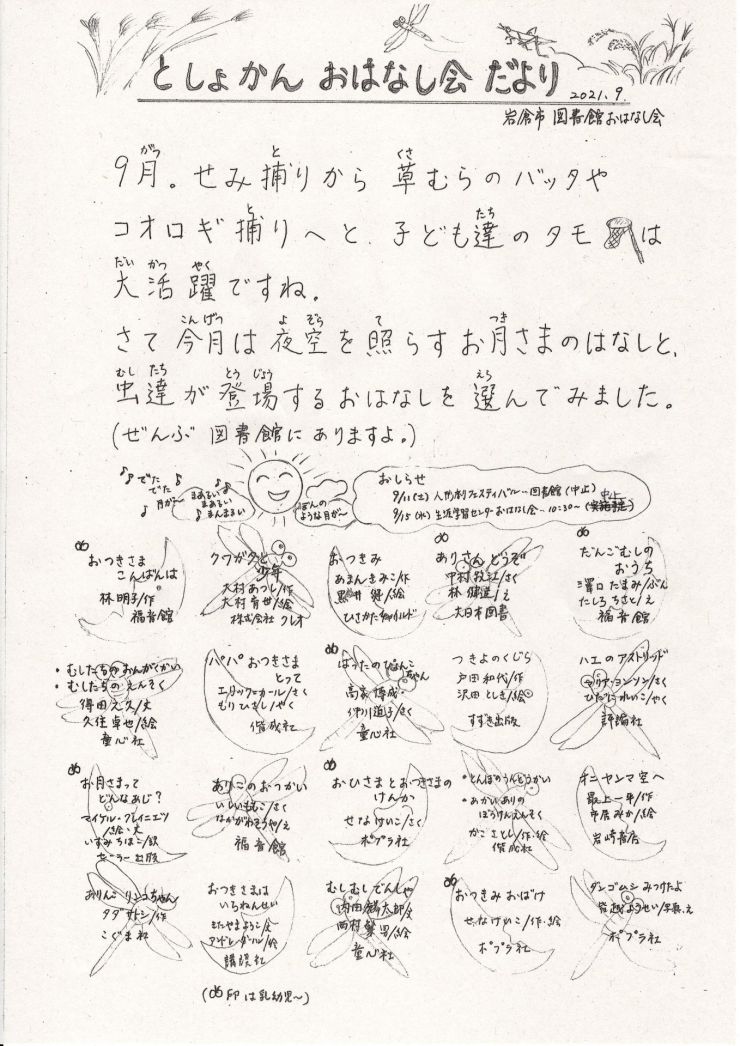 としょかん おはなし会 だより
2021.9.
岩倉市 図書館おはなし会
9月。せみ捕りから 草むらのバッタや
コオロギ捕りへと、子ども達のタモ は
大活躍ですね。
さて今月は夜空を照らすお月さまのはなしと、
虫達が登場するおはなしを選んでみました。
(ぜんぶ 図書館にありますよ。)
♪でた
でた♪
♪月が〜
まあるい♪
まあるい
まんまるい
ぼんの
ような月が〜
おしらせ
9/11(土)人形劇フェスティバル…図書館(中止)
9/15(水)生涯学習センターおはなし会…10:30〜(中止)
おつきさま
こんばんは
林明子/作
福音館
クワガタと
少年
大村あつし/作
大村有世/絵
株式会社 クレオ
おつきみ
あまんきみこ/作
黒井 健/絵
ひさかたチャイルド
ありさん どうぞ
中村牧江/さく
林 健造/え
大日本図書
だんごむしの
おうち
澤口 たまみ/ぶん
たしろ ちさと/え
福音館
・むしたちのおんがくかい
・むしたちのえんそく
得田之久/文
久住卓也/絵
童心社
パパ おつきさま
とって
エリック=カール/さく
もり ひさし/やく
偕成社
ばったのぴょんこ
ちゃん
高家博成・
仲川道子/さく
童心社
つきよのくじら
戸田和代/作
沢田としき/絵
すずき出版
ハエのアストリッド
マリア・ヨンソン/さく
ひだにれいこ/やく
評論社
お月さまって
どんなあじ?
マイケル・グレイニエツ
/絵・文
いずみちほこ/訳
セーラー出版
ありこのおつかい
いしいももこ/さく
なかがわそうや/え
福音館
おひさまとおつきさまの
けんか
せなけいこ/さく
ポプラ社
・とんぼのうんどうかい
・あかいありの
ぼうけんえんそく
かこ さとし/作・絵
偕成社
オニヤンマ空へ
最上一平/作
市居みか/絵
岩崎書店
ありんこ リンコちゃん
タダ サトシ/作
こぐま社
おつきさまは
いちねんせい
きたやまようこ/文
アンドレ・ダーハン/絵
講談社
むしむしでんしゃ
内田麟太郎/文
西村繁男/絵
童心社
おつきみおばけ
せなけいこ/作・絵
ポプラ社
ダンゴムシ みつけたよ
皆越ようせい/写真・文
ポプラ社
(め印は乳幼児〜)